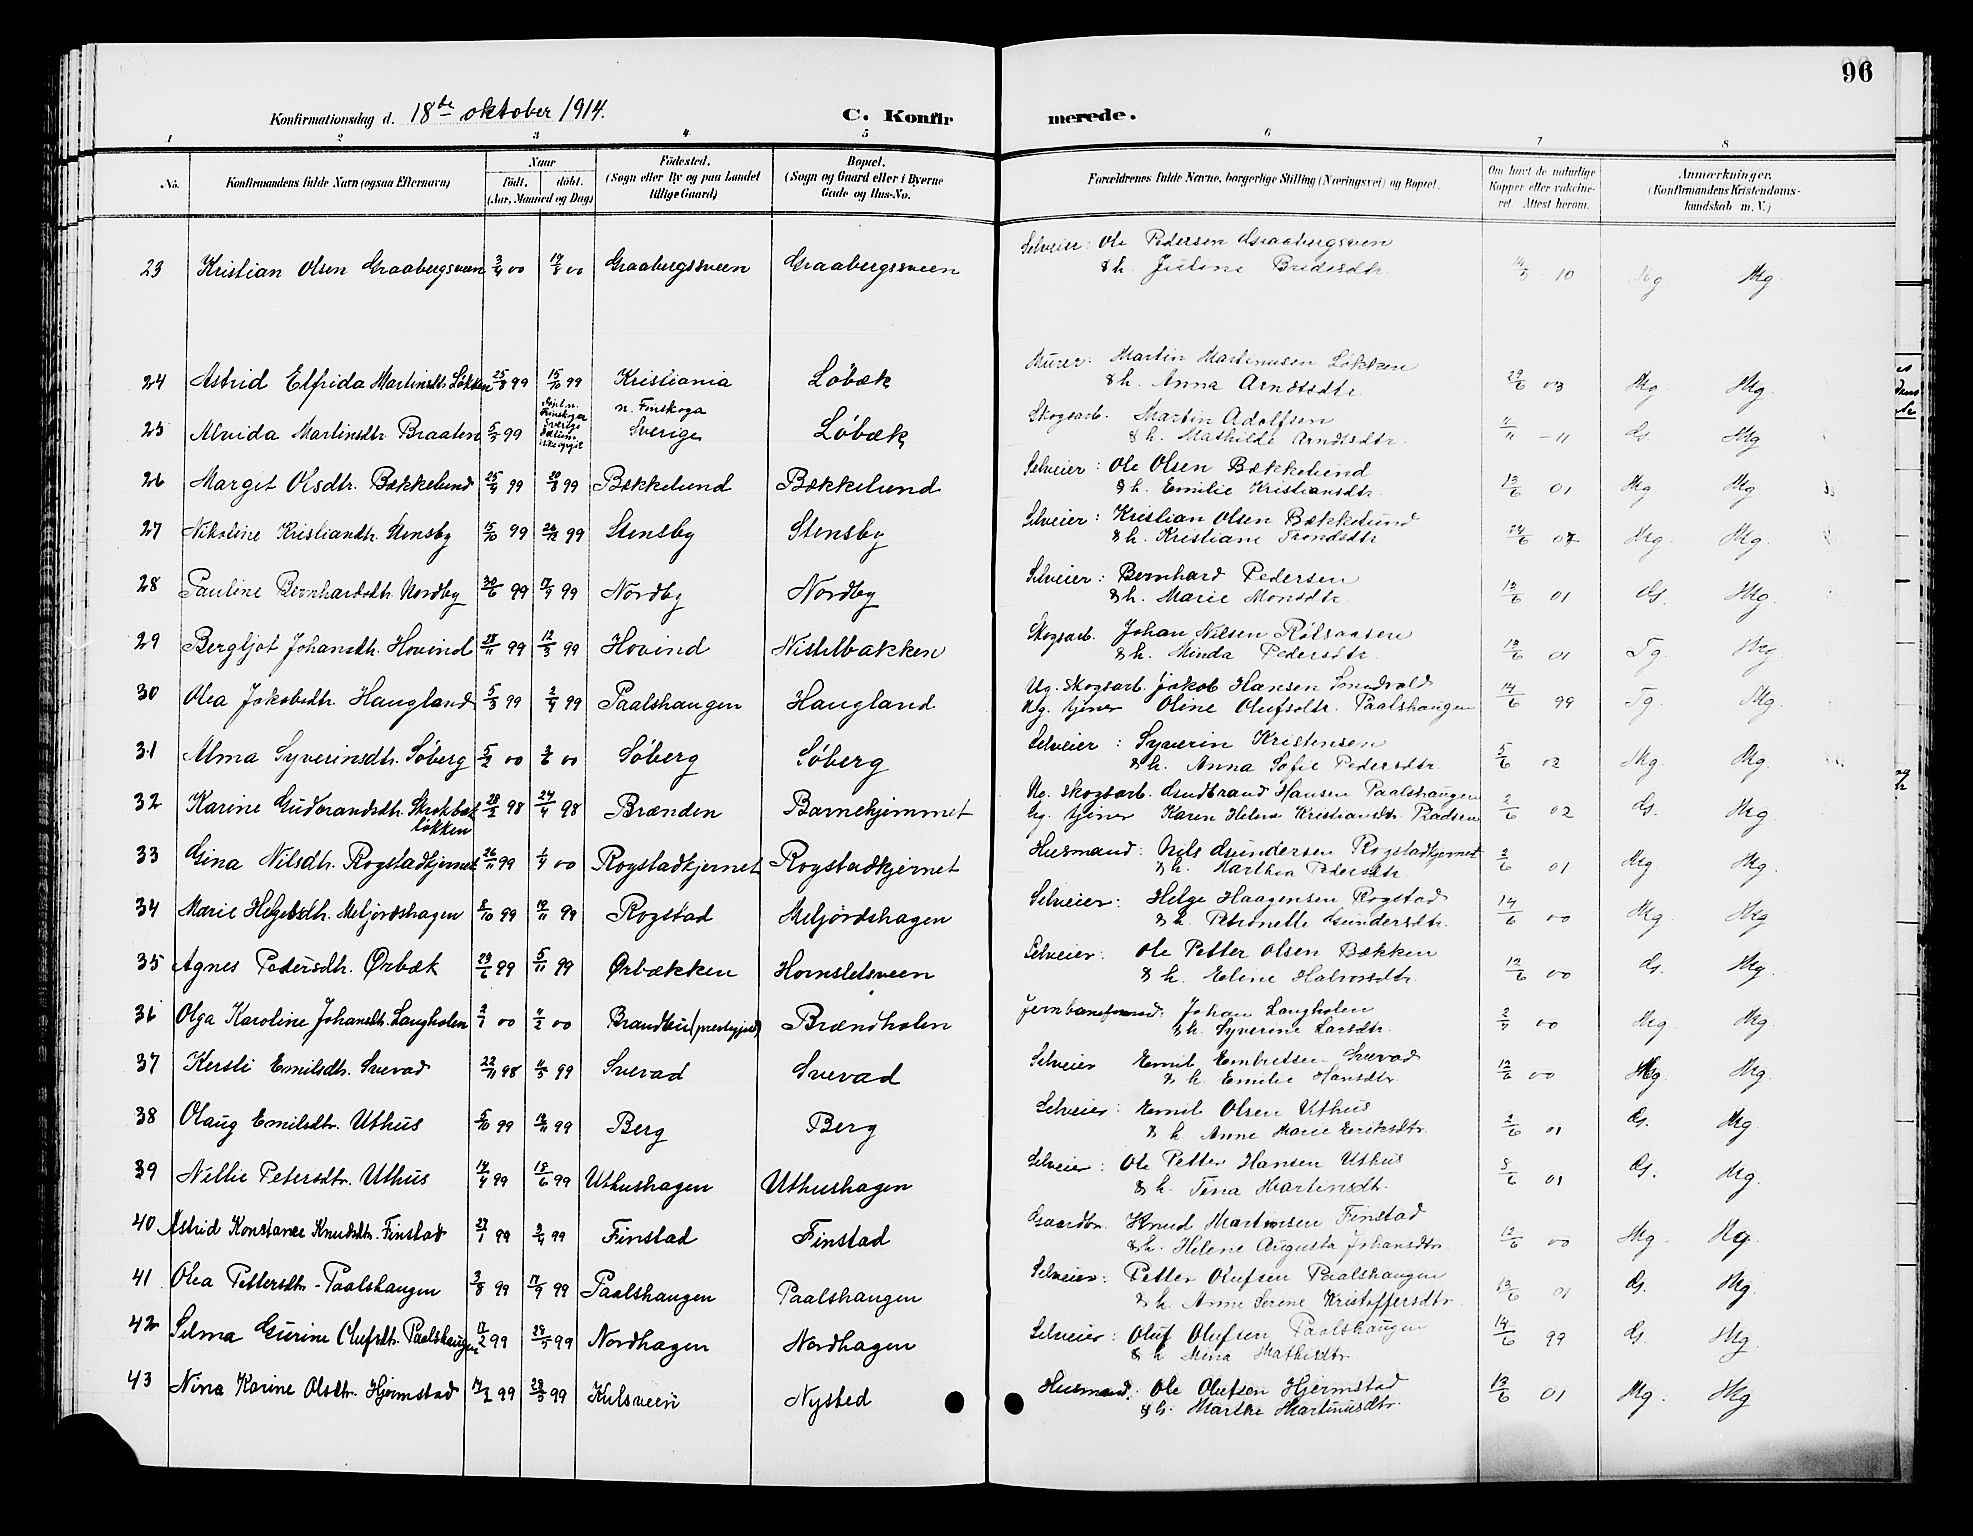 96
Konfirmationsdag d. 18de oktober 1914. C. Konfirmerede.
1 2 3 4 5 6 7 8
No. Konfirmandens fulde Navn (ogsaa Efternavn) Naar født, døbt. (Aar, Maaned og Dag) Födested. (Sogn eller By og paa Landet tillige Gaard) Bopæl. (Sogn og Gaard eller i Byerne Gade og Hus-No. Forældrenes fulde Navne, borgerlige Stilling (Næringsvei) og Bopæl. Om havt de naturlige Kopper eller vaccineret. Attest herom. Anmærkninger. (Konfirmandens Kristendomskundskab m. V.)
23 Kristian Olsen Graabergsveen 3/4 00 Graabergssveen Graabergssveen Selveier: Ole Pedersen Graabergsveen
& h. Juline Bredesdtr. 10 Mg Mg.
24 Astrid Elfrida Martinsdtr. Løkken 25/8 99 15/10 99 Kristiania Löbæk Murer: Martin Martinusen Løkken
& h. Anna Arndtsdtr. 29/6 03 Mg. Mg.
25 Alvida Martinsdtr. Braaten 5/3 99 n. Finskoga Sverige Löbæk Skogsarb. Martin Adolfsen
& h. Mathilde Arndtsdtr. 11/11 - 11 dg. Mg
26 Margit Olsdtr. Bækkelund 25/4 99 20/8 99 Bækkelund Bækkelund Selveier: Ole Olsen Bækkelund
& h. Emilie Kristiansdtr. 13/6 01 Mg Mg
27 Nikoline Kristiandtr. Stensby 15/10 99 26/12 99 Stensby Stensby Selveier: Kristian Olsen Bækkelund
& h. Kristiane Trondsdtr. 24/6 07 Mg. Mg.
28 Pauline Bernhardsdtr. Nordby 30/6 99 17/9 99 Nordby Nordby Selveier: Bernhard Pedersen
& h. Marie Monsdtr. 13/6 01 dg. Mg.
29 Bergljot Johansdtr. Hovind 99 12/3 99 Hovind Nistelbakken Skogsarb. Johan Nilsen
& h. Minda Pedersdtr. 13/6 01 Tg. Mg
30 Olea Jakobsdtr. Haugland 5/3 99 2/4 99 Paalshaugen Haugland Ug. skogsarb. Jakob Hansen
Ug. tjener Oline Olufsdtr. Paalshaugen 14/6 99 Tg. Mg.
31 Alma Syverinsdtr. Söberg 5/2 00 3/6 00 Söberg Söberg Selveier: Syverin Kristensen
& h. Anna Sofie Pedersdtr. 5/6 02 Mg. Mg.
32 Karine Gudbrandsdtr. løkken 28/2 98 24/4 98 Brænden Barnehjemmet Ug. skogsarb. Gudbrand Hansen Paalshaugen
Ug. tjener Karen Helene Kristiansdtr. 2/6 02 dg. Mg
33 Gina Nilsdtr. Rogstadkjernet 26/11 99 1/4 00 Rogstadkjernet Rogstadkjernet Husmand: Nils Gundersen Rogstadkjernet
& h. Marthea Pedersdtr 2/6 01 Mg Mg.
34 Marie Helgesdtr. Meljordshagen 8/10 99 19/11 99 Rogstad Meljordshagen Selveier: Helge Haagensen Rogstad
& h. Petronelle Gundersdtr. 14/6 00 Mg Mg
35 Agnes Pedersdtr. Ørbæk 23/6 99 5/11 99 Ørbækken Hornsletsveen Selveier: Ole Petter Olsen Bækken
& h. Eline Halvorsdtr. 12/6 00 dg. Mg.
36 Olga Karoline Johansdtr. Langholen 2/1 00 4/2 00 Brandbu (prestegjeld) Brændholen Jernbaneformand. Johan Langholen
& h. Syverine Larsdtr. 00 Mg Mg.
37 Kersti Emilsdtr. Svevad 22/11 98 4/5 99 Svevad Svevad Selveier Emil Embretsen Svevad
& h. Emilie Hansdtr. 12/6 00 Mg Mg.
38 Olaug Emilsdtr. Uthus 5/10 99 99 Berg Berg Selveier: Emil Olsen Uthus
& h. Anne Marie Eriksdtr. 2/6 01 dg. Mg.
39 Nellie Petersdtr. Uthus 14/4 99 18/6 99 Uthushagen Uthushagen Selveier: Ole Petter Hansen Uthus
& h. Tena Martinsdtr. 8/6 01 dg. Mg.
40 Astrid Konstance Knudsdtr. Finstad 27/1 99 2/4 99 Finstad Finstad Gaardbr. Knud Martinsen Finstad
& h. Helene Augusta Johansdtr. 12/6 00 Mg. Mg.
41 Olea Pettersdtr. Paalshaugen 3/8 99 17/9 99 Paalshaugen Paalshaugen Selveier: Petter Olufsen Paalshaugen
& h. Anne Serene Kristoffersdtr. 13/6 01 dg. Mg.
42 Selma Gurine Olufsdtr. Paalshaugen 17/2 99 28/5 99 Nordhagen Nordhagen Selveier: Oluf Olufsen Paalshaugen
& h Mina Mathisdtr. 14/6 99 dg. Mg.
43 Nina Karine Olsdtr. Hjermstad 99 28/5 99 Kulsveen Nysted Husmand. Ole Olufsen Hjermstad
& h. Marthe Martinusdtr. 13/6 01 Mg. Mg